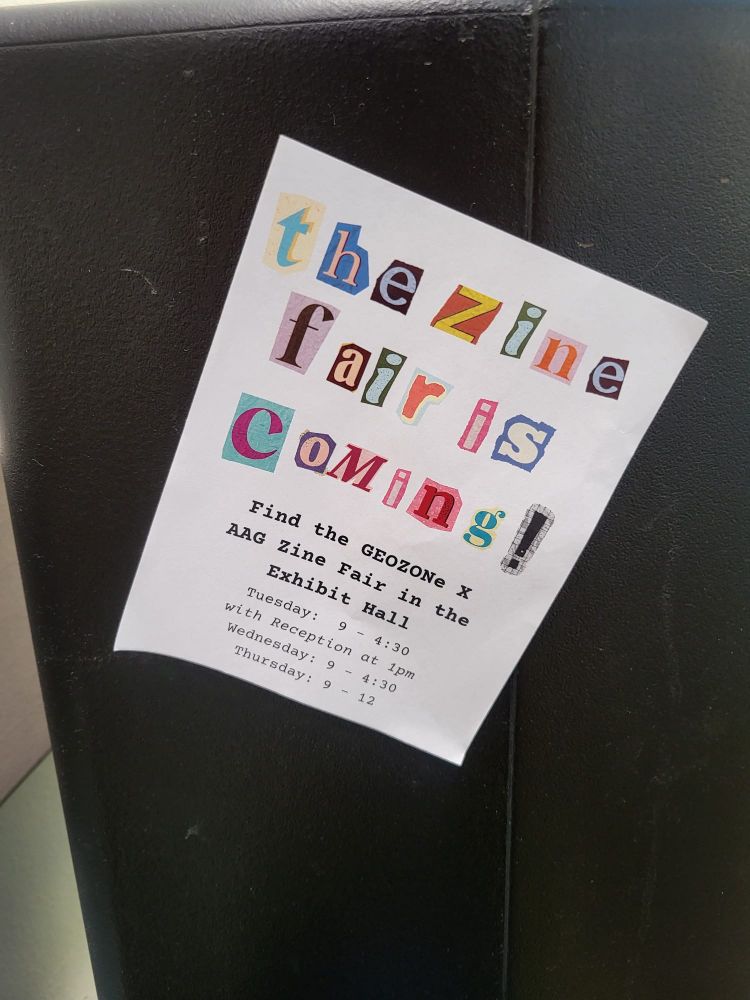 the zine
fair is
CoMing!
Find the GEOZONe X
AAG Zine Fair in the
Exhibit Hall
Tuesday: 9 - 4:30
with Reception at 1pm
Wednesday: 9 - 4:30
Thursday: 9 - 12